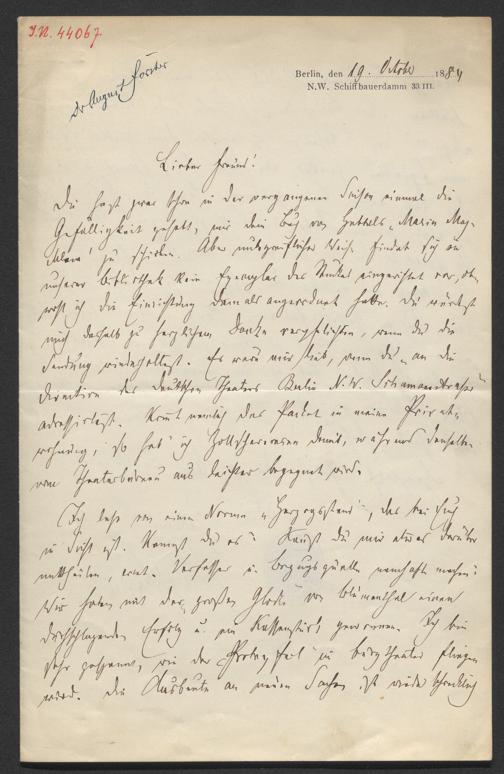 J.N. 44067
Dr August Förster
Berlin, den 19. Octobr 1884
N.W. Schiffbauerdamm 33 III.
Lieber Freund!
Du hast zwar schon in der vergangenen Saison einmal die
Gefälligkeit gehabt, mir dein Buch von Hebbels „Maria Mag-
dalena" zu schicken. Aber unbegreiflicher Weise findet sich in
unserer Bibliothek kein Exemplar des Stückes eingerichtet vor, ob-
wohl ich die Einrichtung damals angeordnet hatte. Du würdest
mich deshalb zu herzlichem Danke verpflichten, wenn du die
Sendung wiederholtest. Es wäre mir lieb, wenn du „an die
Direction des deutschen Theaters Berlin N.W. Schumannstrasse"
adressirtest. Kommt nemlich das Packet in meine Privat-
wohnung, so hab' ich Zollscherereien damit, während denselben
vom Theaterbureau aus leichter begegnet wird.
Ich lese von einem Drama „Herzogsstand", das bei Euch
in Sicht ist. Kennst du es? Kannst du mir etwas darüber
mittheilen, event. Verfasser u. Bezugsquelle namhaft machen?
Wir haben mit der „großen Glocke" von Blumenthal einen
durchschlagenden Erfolg u. ein Kassenstück gewonnen. Ich bin
sehr gespannt, wie der „Probepfeil" im Burgtheater fliegen
wird. Die Ausbeute an neuen Sachen ist wieder schrecklich